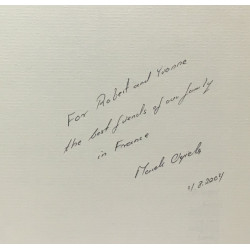 For Robert and Yvonne
the best friends of our family
in France
4.8.2004